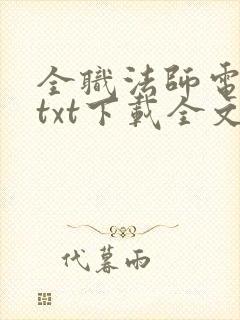 全職法師電
txt下載全文
代暮雨